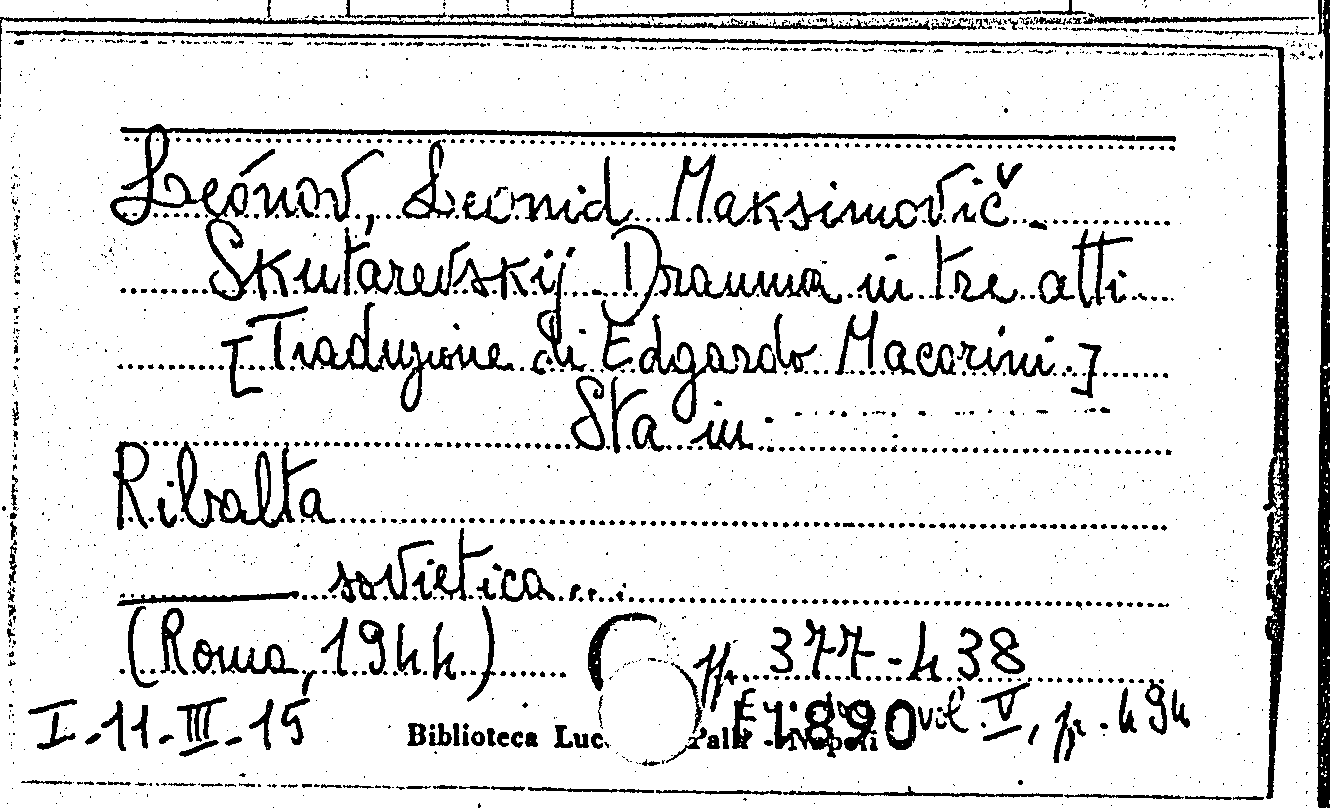 Leónov, Leonid Maksimovič.
Skutarevskij. Dramma in tre atti
[Traduzione di Edgardo Macorini.]
Sta in:
Ribalta
sovietica...
(Roma, 1944) pp. 377-438
I-11-III-15 Biblioteca Palli - Napoli 1890 vol. V, p. 494